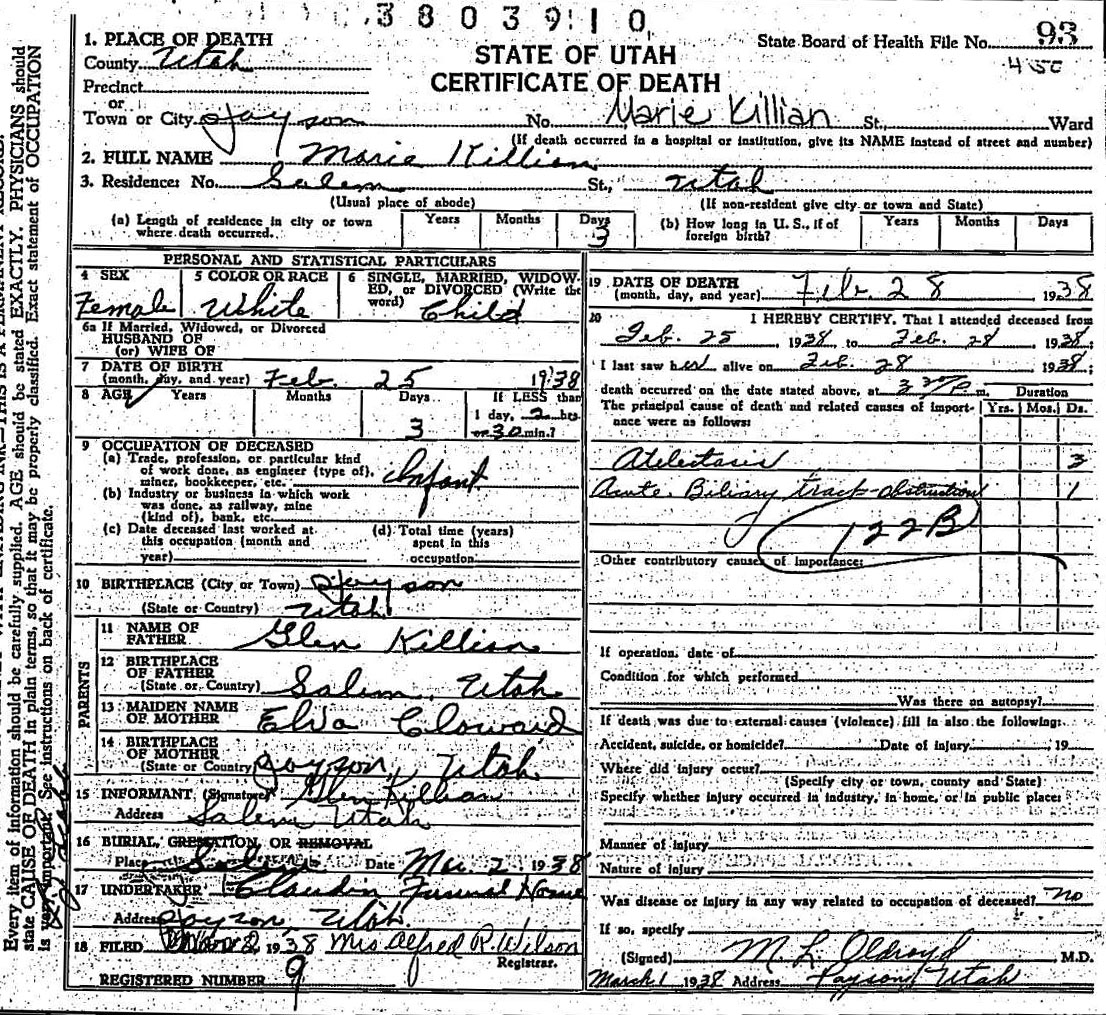 3803910
93
1. PLACE OF DEATH
STATE OF UTAH
State Board of Health File No.
County Utah
CERTIFICATE OF DEATH
Precinct
or
Town or City Payson No. Marie Killian St., Ward
(If death occurred in a hospital or institution, give its NAME instead of street and number)
2. FULL NAME Marie Killian
3. Residence: No. Salem St., Utah
(Usual place of abode) (If non-resident give city or town and State)
(a) Length of residence in city or town where death occurred. Years Months Days 3 (b) How long in U. S., if of foreign birth? Years Months Days
PERSONAL AND STATISTICAL PARTICULARS
4 SEX 5 COLOR OR RACE 6 SINGLE, MARRIED, WIDOWED, or DIVORCED (Write the word)
Female White Child
6a If Married, Widowed, or Divorced
HUSBAND OF
(or) WIFE OF
7 DATE OF BIRTH
(month, day, and year) Feb. 25 1938
8 AGE Years Months Days If LESS than
3 1 day, 2 hrs.
or 30 min.?
9 OCCUPATION OF DECEASED
(a) Trade, profession, or particular kind
of work done, as engineer (type of),
miner, bookkeeper, etc. Infant
(b) Industry or business in which work
was done, as railway, mine
(kind of), bank, etc.
(c) Date deceased last worked at
this occupation (month and
year)
(d) Total time (years)
spent in this
occupation
10 BIRTHPLACE (City or Town) Payson
(State or Country) Utah
PARENTS
11 NAME OF
FATHER Glen Killian
12 BIRTHPLACE
OF FATHER
(State or Country) Salem, Utah
13 MAIDEN NAME
OF MOTHER Elva Cloward
14 BIRTHPLACE
OF MOTHER
(State or Country) Payson, Utah
15 INFORMANT (Signature) Glen Killian
Address Salem Utah
16 BURIAL, CREMATION OR REMOVAL
Place Salem Date Mar. 2 1938
17 UNDERTAKER Claudin Funeral Home
Address Payson, Utah
18 FILED Mar 2 1938 Mrs Alfred R. Wilson
Registrar.
REGISTERED NUMBER 9
19 DATE OF DEATH
(month, day, and year) Feb. 28 1938
20 I HEREBY CERTIFY, That I attended deceased from
Feb. 25 1938 to Feb. 28 1938;
I last saw her alive on Feb. 28 1938;
death occurred on the date stated above, at P m.
The principal cause of death and related causes of importance were as follows:
Duration
Yrs. Mos. Ds.
Atelectasis 3
Acute Biliary tract obstruction 1
122B
Other contributory causes of importance:
If operation, date of
Condition for which performed
Was there an autopsy?
If death was due to external causes (violence) fill in also the following:
Accident, suicide, or homicide? Date of injury 19
Where did injury occur?
(Specify city or town, county and State)
Specify whether injury occurred in industry, in home, or in public place:
Manner of injury
Nature of injury
Was disease or injury in any way related to occupation of deceased? no
If so, specify
(Signed) M. L. Oldroyd M.D.
March 1 1938 Address Payson Utah
Every item of information should be carefully supplied. AGE should be stated EXACTLY. PHYSICIANS should
state CAUSE OF DEATH in plain terms, so that it may be properly classified. Exact statement of OCCUPATION
is very important. See instructions on back of certificate.